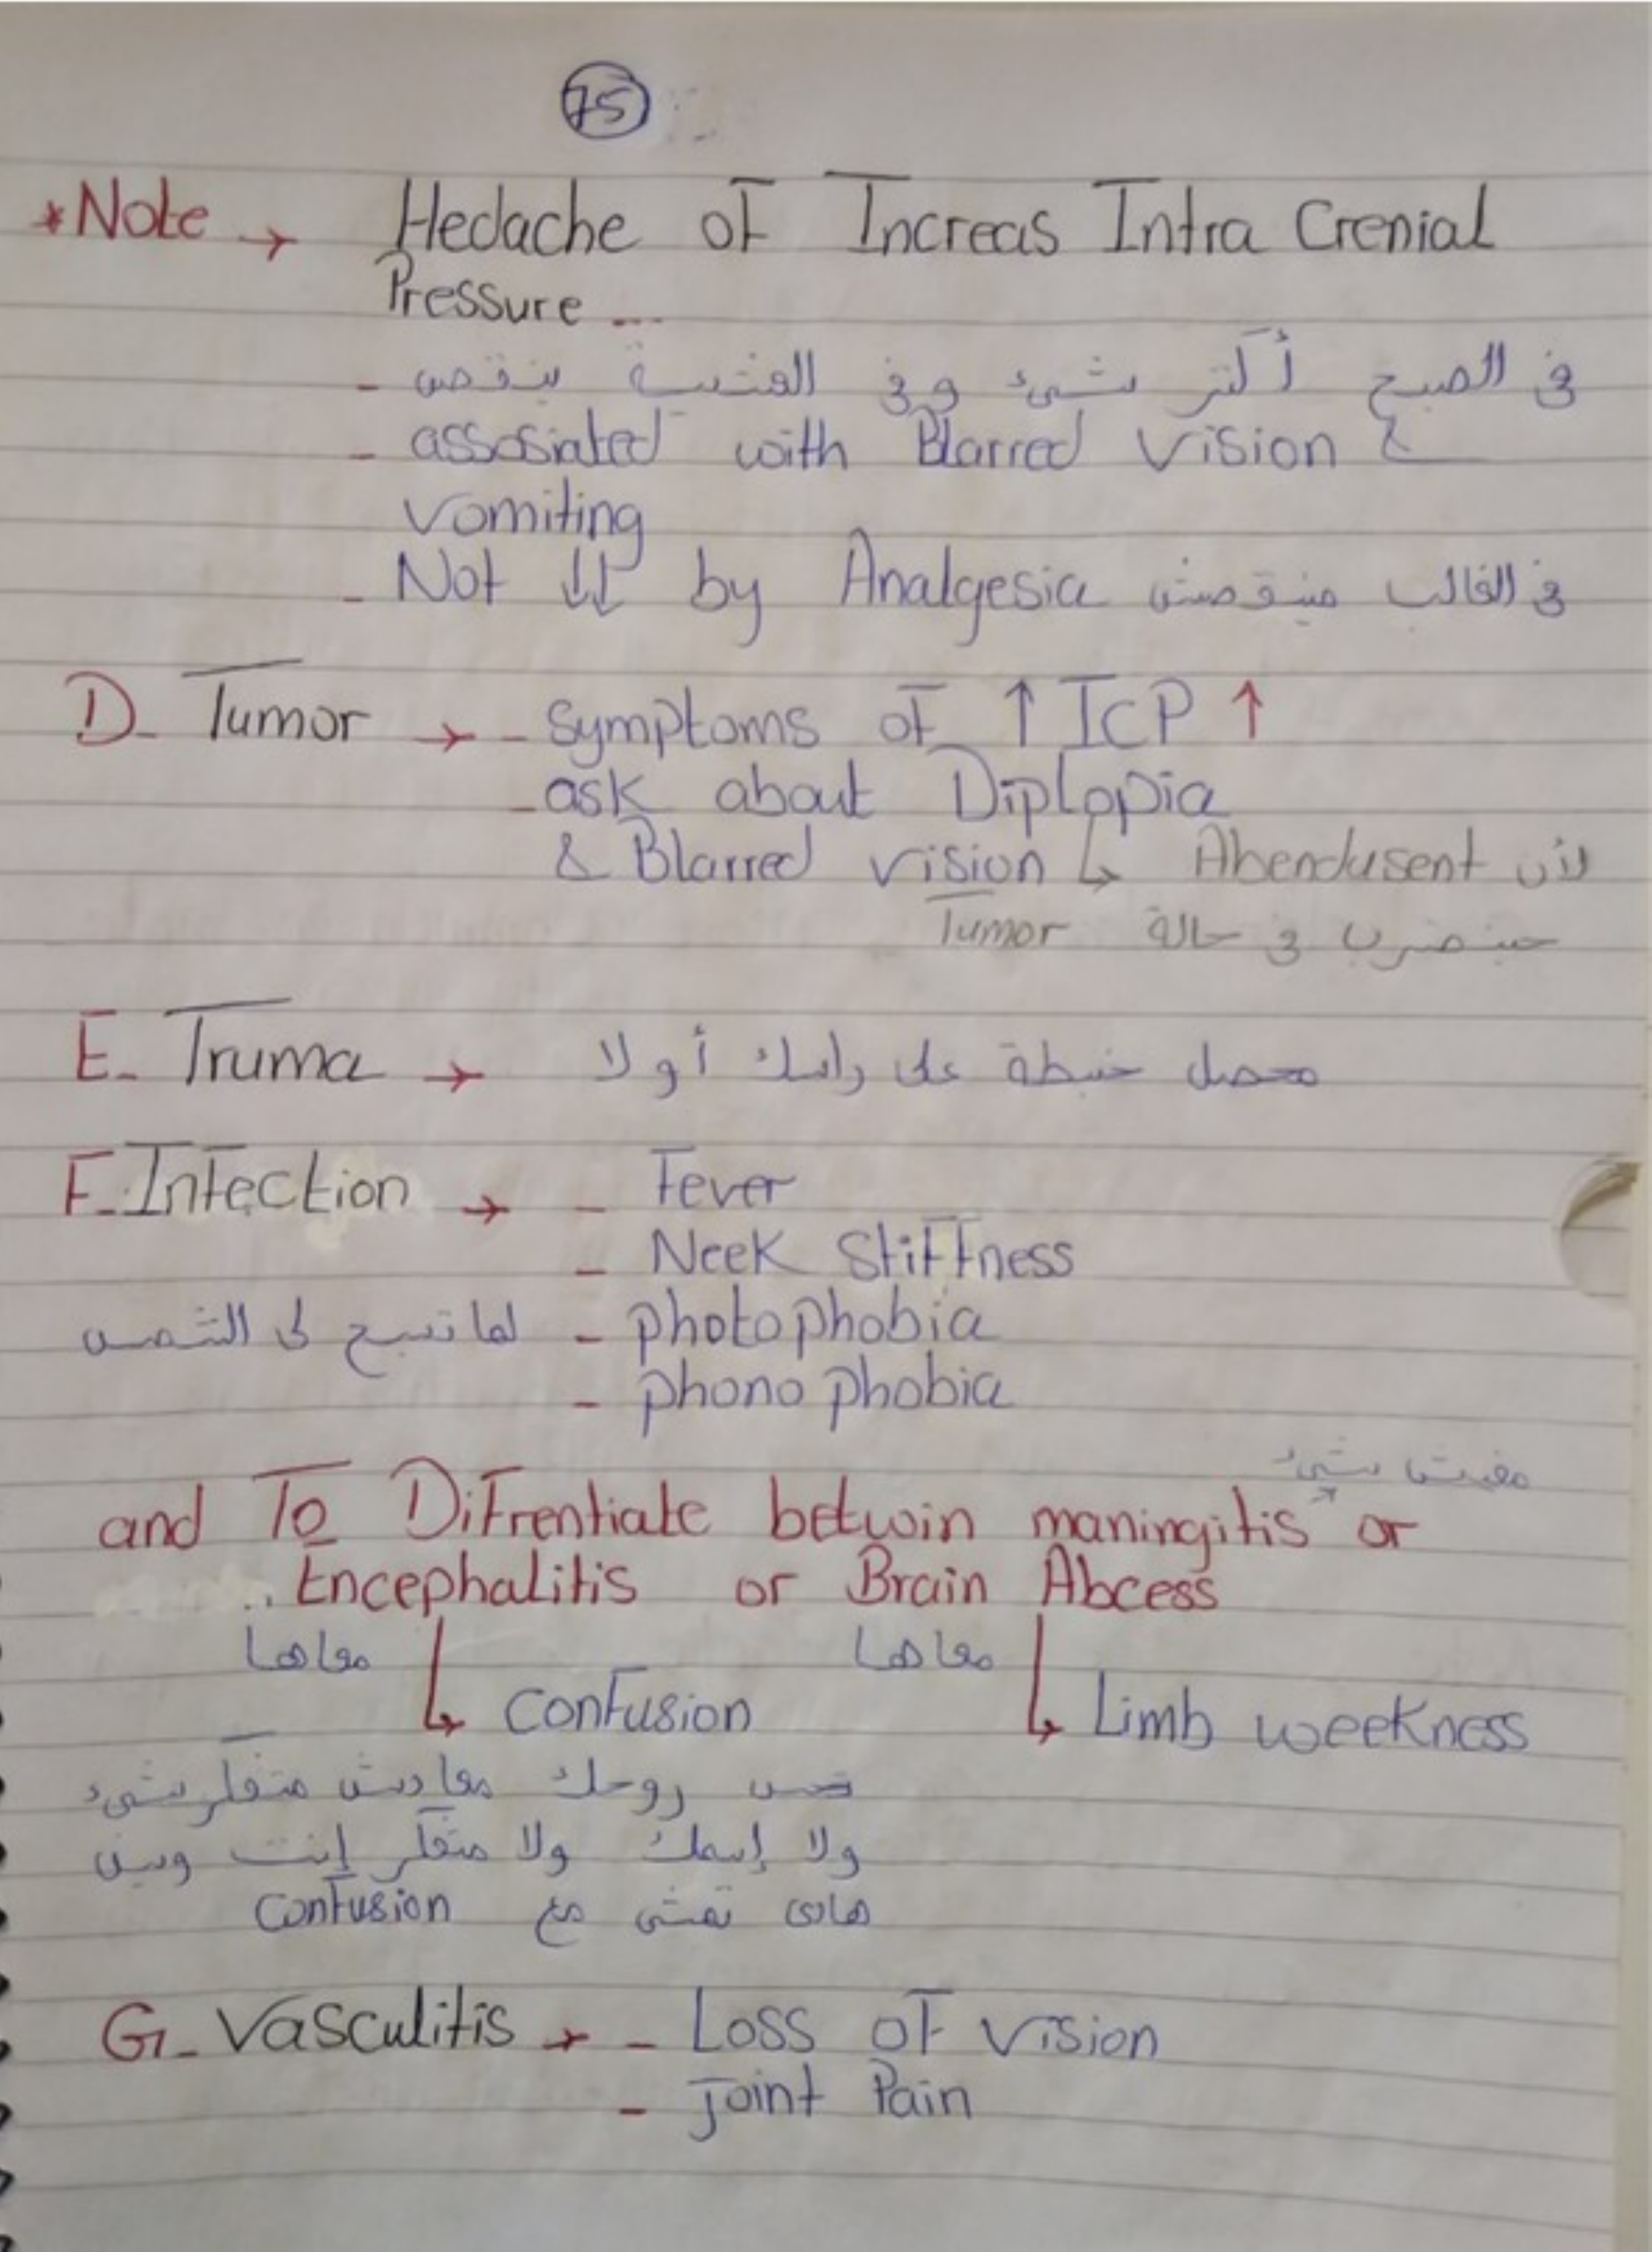 75
*Note → Hedache of Increas Intra Crenial
Pressure ...
- في الصبح أكتر شيء وفي العشية ينقص
- assosiated with Blarred vision &
vomiting
- Not ↓↓ by Analgesia في الغالب مينقصش
D- Tumor → - symptoms of ↑ ICP ↑
- ask about Diplopia
& Blarred vision ↳ Abendusent لأن
حينضرب في حالة Tumor
E- Truma → محصل خبطة على راسك أولا
F- Infection → - Fever
- Neek Stiffness
- photophobia لما تسبح لى الشمس
- phono phobia
مفيش شيء
and To Difrentiate betwin maningitis or
Encephalitis or Brain Abcess
معاها معاها
↳ Confusion ↳ Limb weekness
تحس روحك معادش متفكر شيء
ولا إسمك ولا متفكر إنت وين
هادى تمشى مع Confusion
G- Vasculitis → - Loss of vision
- Joint Pain